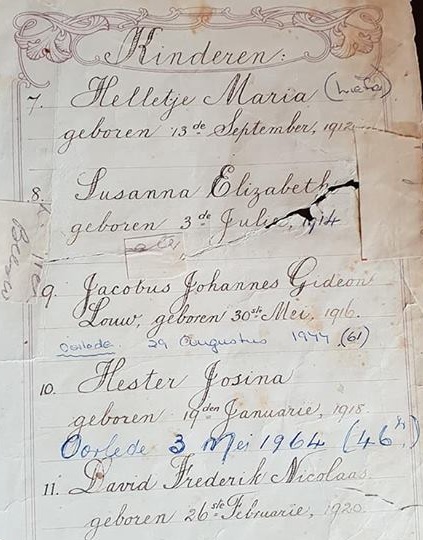 Kinderen:
7. Helletje Maria
geboren 13de September, 1912
8. Susanna Elizabeth
geboren 3de Julie, 1914
9. Jacobus Johannes Gideon
Louw, geboren 30ste Mei, 1916.
Oorlede 29 Augustus 1977 (61)
10. Hester Josina
geboren 19den Januarie, 1918.
Oorlede 3 Mei 1964 (46
11. David Frederik Nicolaas
geboren 26ste Februarie, 1920.